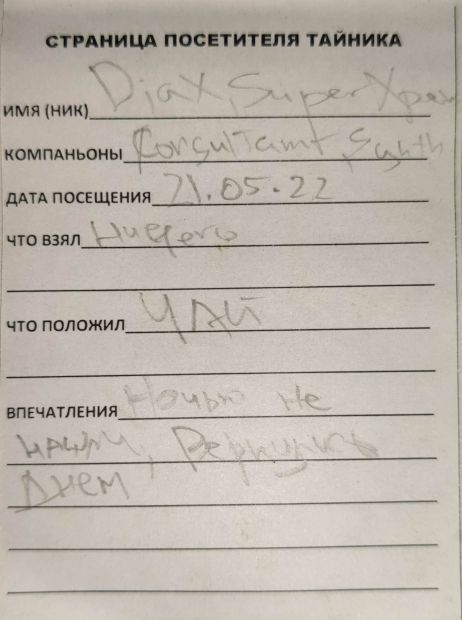 СТРАНИЦА ПОСЕТИТЕЛЯ ТАЙНИКА
ИМЯ (НИК) DjaX, SuperХрен
КОМПАНЬОНЫ Consultamt, Synth
ДАТА ПОСЕЩЕНИЯ 21.05.22
ЧТО ВЗЯЛ Ничего
ЧТО ПОЛОЖИЛ ЧАЙ
ВПЕЧАТЛЕНИЯ Ночью не
нашли, Вернулись
Днем